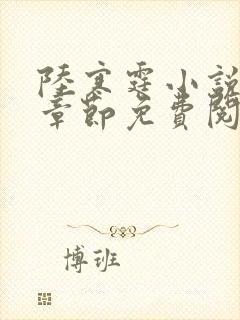 陸寒霆小說
章節免費閱
博班